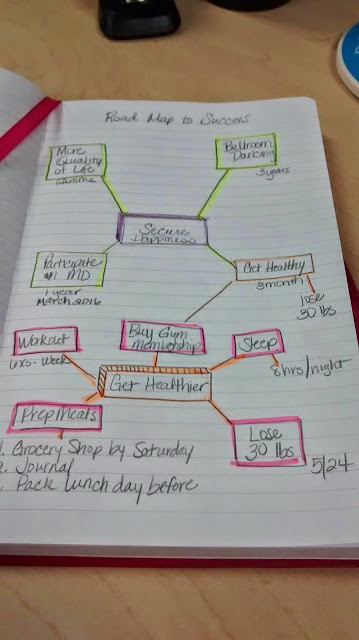 Road Map to Success
More
Quality
of Life
lifetime
Ballroom
Dancing
3 years
Secure
Happiness
Participate
in MD
1 year
March 2016
Get Healthy
3 month
lose
30 lbs
Buy Gym
Membership
Workout
Week
Sleep
8hrs/night
Get Healthier
Prep Meals
Lose
30 lbs
5/24
1. Grocery Shop by Saturday
Journal
Pack lunch day before